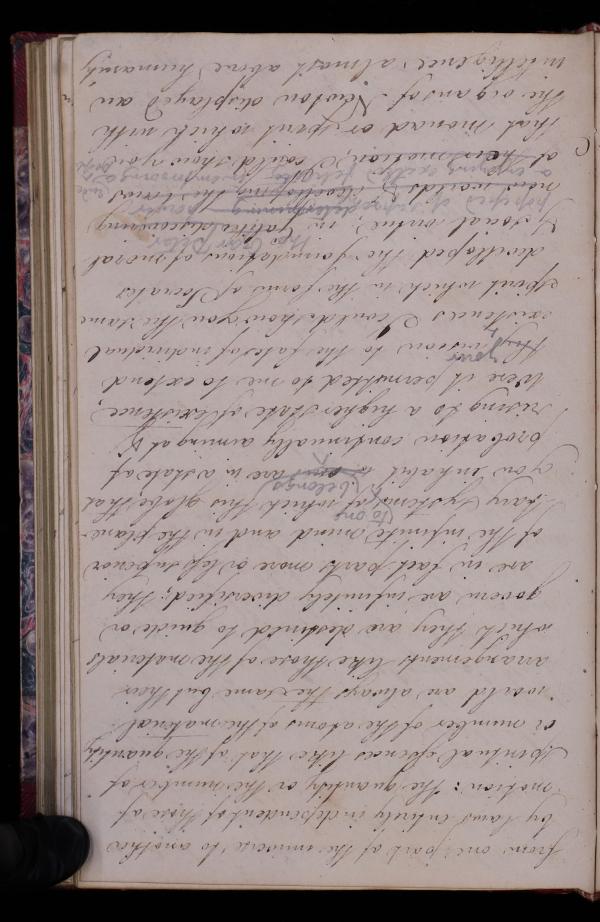 from one part of the universe to another
by laws entirely independent of those of
motion: the quantity or the number of
spiritual essences like that of the quantity
or number of the atoms of the material
world are always the same but their
arrangements like those of the materials
which they are destined to guide or
govern are infinitely diversified; they
are in fact parts more or less inferior
of the infinite mind and in the plane-
tary systems to one of which this globe that
you inhabit belongs are in a state of
probation continually aiming at &
rising to a higher state of existence.
Were it permitted to me to extend
your vision to the fates of individual
existences I could show you the same
spirit which in the form of Socrates
developed the foundations of moral
& social virtue, in the Czar Peter
Galileo discovering
possessed of supreme power
new worlds & developing the laws
& enjoying exalted felicity in improving a rude people
of motion, I could show you
that monad or spirit which with
the organs of Newton displayed an
intelligence almost above humanity